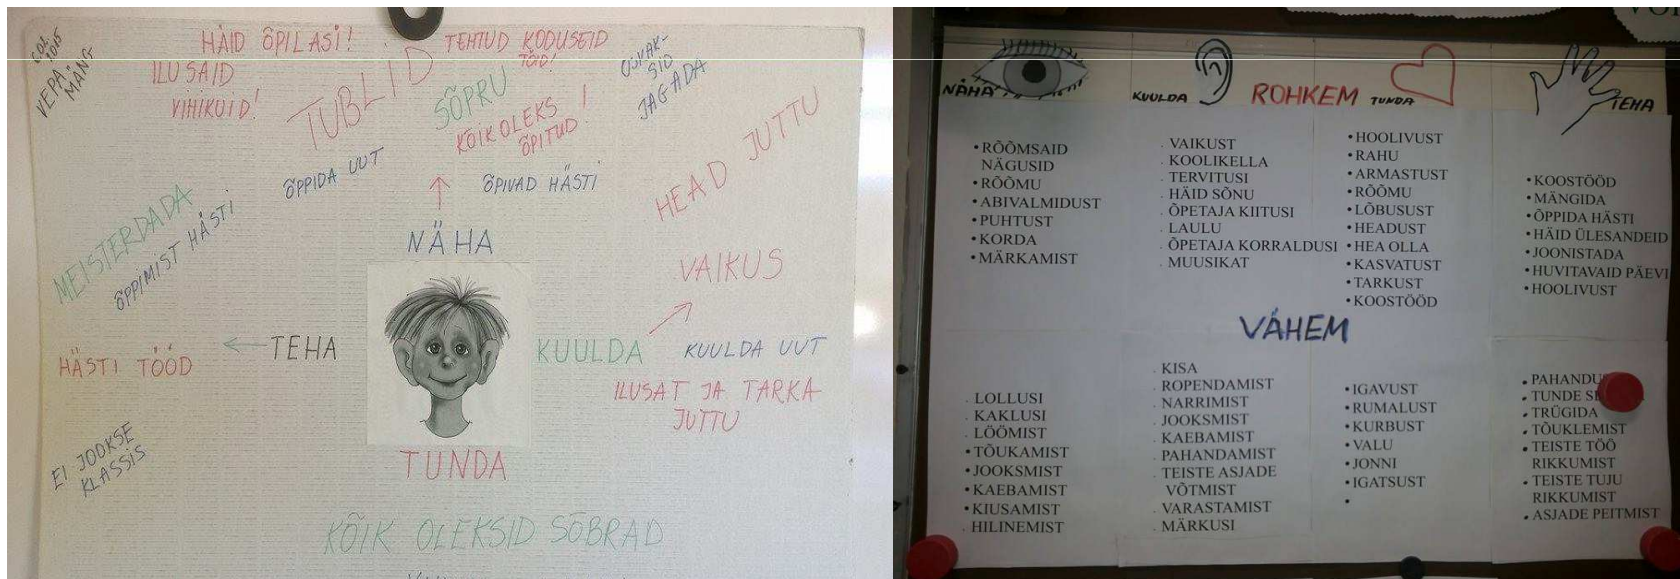 VEPA
MÄNG
HÄID ÕPILASI!
ILUSAID
VIHIKUID!
TUBLID
TEHTUD KODUSEID
TÖÖD!
SÕPRU
KÕIK OLEKS
ÕPITUD!
JAGADA
HEAD JUTTU
ÕPPIDA UUT
ÕPIVAD HÄSTI
MEISTERDADA
ÕPPIMIST HÄSTI
NÄHA
VAIKUS
TEHA
HÄSTI TÖÖD
KUULDA
KUULDA UUT
ILUSAT JA TARKA
JUTTU
EI JOOKSE
KLASSIS
TUNDA
KÕIK OLEKSID SÕBRAD
NÄHA
KUULDA
ROHKEM
TUNDA
TEHA
• RÕÕMSAID
NÄGUSID
• RÕÕMU
• ABIVALMIDUST
• PUHTUST
• KORDA
• MÄRKAMIST
. VAIKUST
. KOOLIKELLA
. TERVITUSI
. HÄID SÕNU
. ÕPETAJA KIITUSI
. LAULU
. ÕPETAJA KORRALDUSI
. MUUSIKAT
• HOOLIVUST
• RAHU
• ARMASTUST
• RÕÕMU
• LÕBUSUST
• HEADUST
• HEA OLLA
• KASVATUST
• TARKUST
• KOOSTÖÖD
• KOOSTÖÖD
• MÄNGIDA
• ÕPPIDA HÄSTI
• HÄID ÜLESANDEID
• JOONISTADA
• HUVITAVAID PÄEVI
• HOOLIVUST
VÄHEM
. LOLLUSI
. KAKLUSI
. LÖÖMIST
• TÕUKAMIST
• JOOKSMIST
• KAEBAMIST
• KIUSAMIST
. HILINEMIST
. KISA
. ROPENDAMIST
. NARRIMIST
. JOOKSMIST
. KAEBAMIST
. PAHANDAMIST
. TEISTE ASJADE
VÕTMIST
. VARASTAMIST
. MÄRKUSI
• IGAVUST
• RUMALUST
• KURBUST
• VALU
• JONNI
• IGATSUST
•
• TUNDE
• TRÜGIDA
• TÕUKLEMIST
• TEISTE TÖÖ
RIKKUMIST
• TEISTE TUJU
RIKKUMIST
• ASJADE PEITMIST